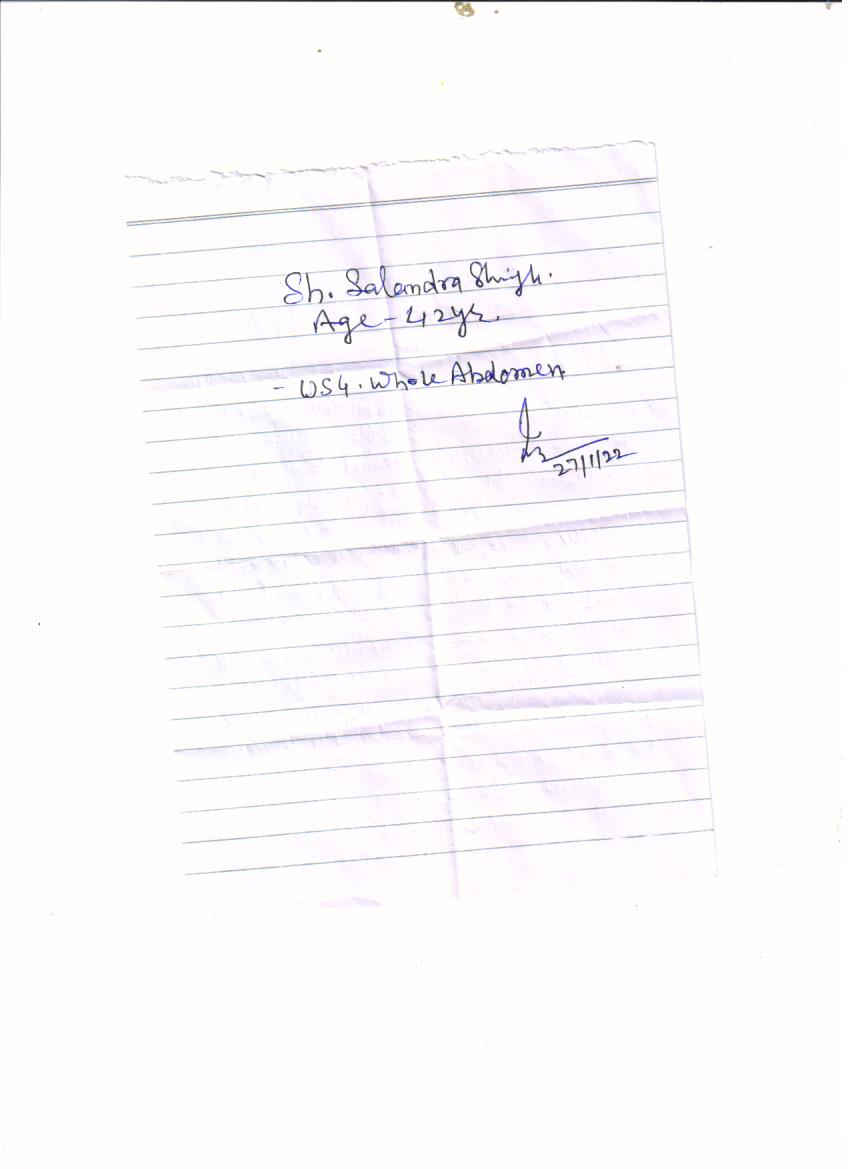 Sh. Salandra Shigh.
Age - 42yr.
- USG. Whole Abdomen
27/1/22